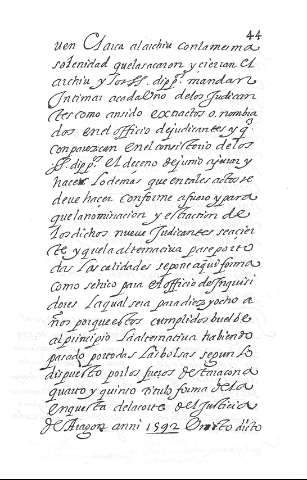 44
uen El arca al archiu con la mesma
solenidad que la sacaron y cierran El
archiu y los SS. dipp.s mandan
Intimar a cada Uno de los Judican
tes como an sido extractos o nombra
dos en el officio de judicantes y q
conparezcan en el consistorio de los
SS. dipp.s el deceno de junio a jurar y
hacer lo demás que en tales actos se
deve hacer conforme a fuero y para
que la nominacion y extraction de
los dichos nueve Judicantes sea cier
ta y que la alternativa pase por to
das las calidades se pone aqui forma
como se hiço para el officio de Inquiri
dores la qual sera para diez y ocho a
ños porque estos cumplidos buelbe
al principio la alternativa habiendo
pasado por todas las bolsas segun lo
dispuesto por los fueros de taraçona
quarto y quinto titulo forma de la
enquesta de la corte del Justicia
de Aragon anni 1592